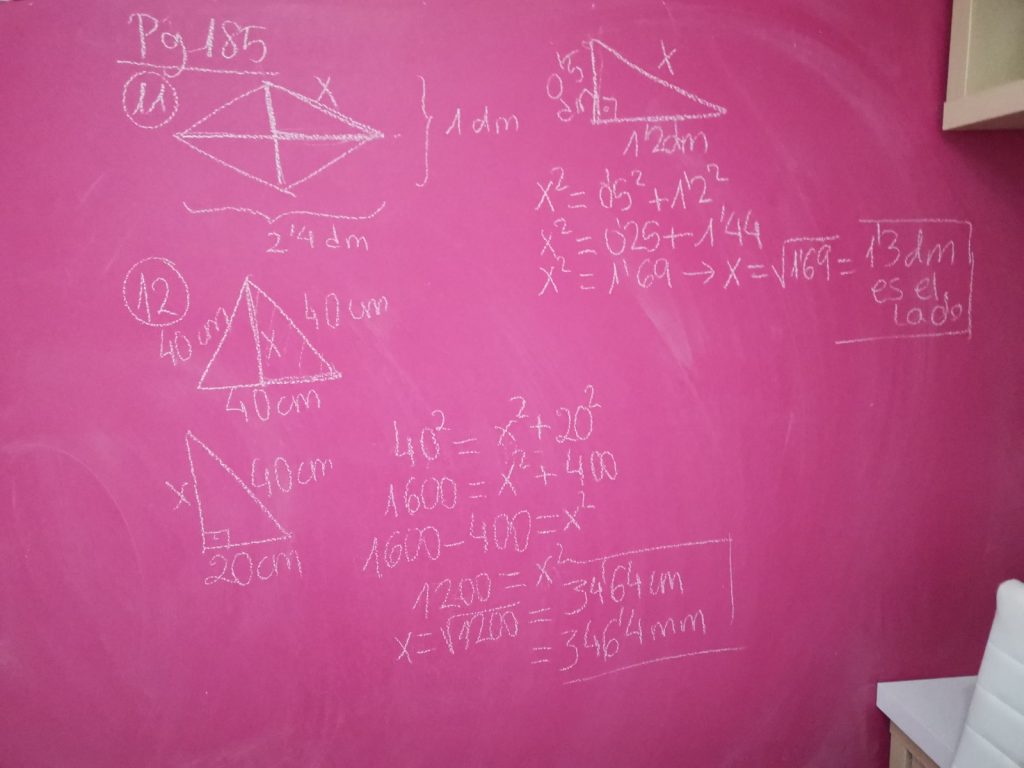 Pg 185
11
x
1 dm
2'4 dm
0'5 dm
x
1'2dm
x² = 0'5² + 1'2²
x² = 0'25 + 1'44
x² = 1'69 → x = √1'69 = 1'3 dm
es el
lado
12
40 cm
40 cm
x
40 cm
x
40 cm
20 cm
40² = x² + 20²
1600 = x² + 400
1600 - 400 = x²
1200 = x²
x = √1200 = 34'64 cm
= 346'4 mm